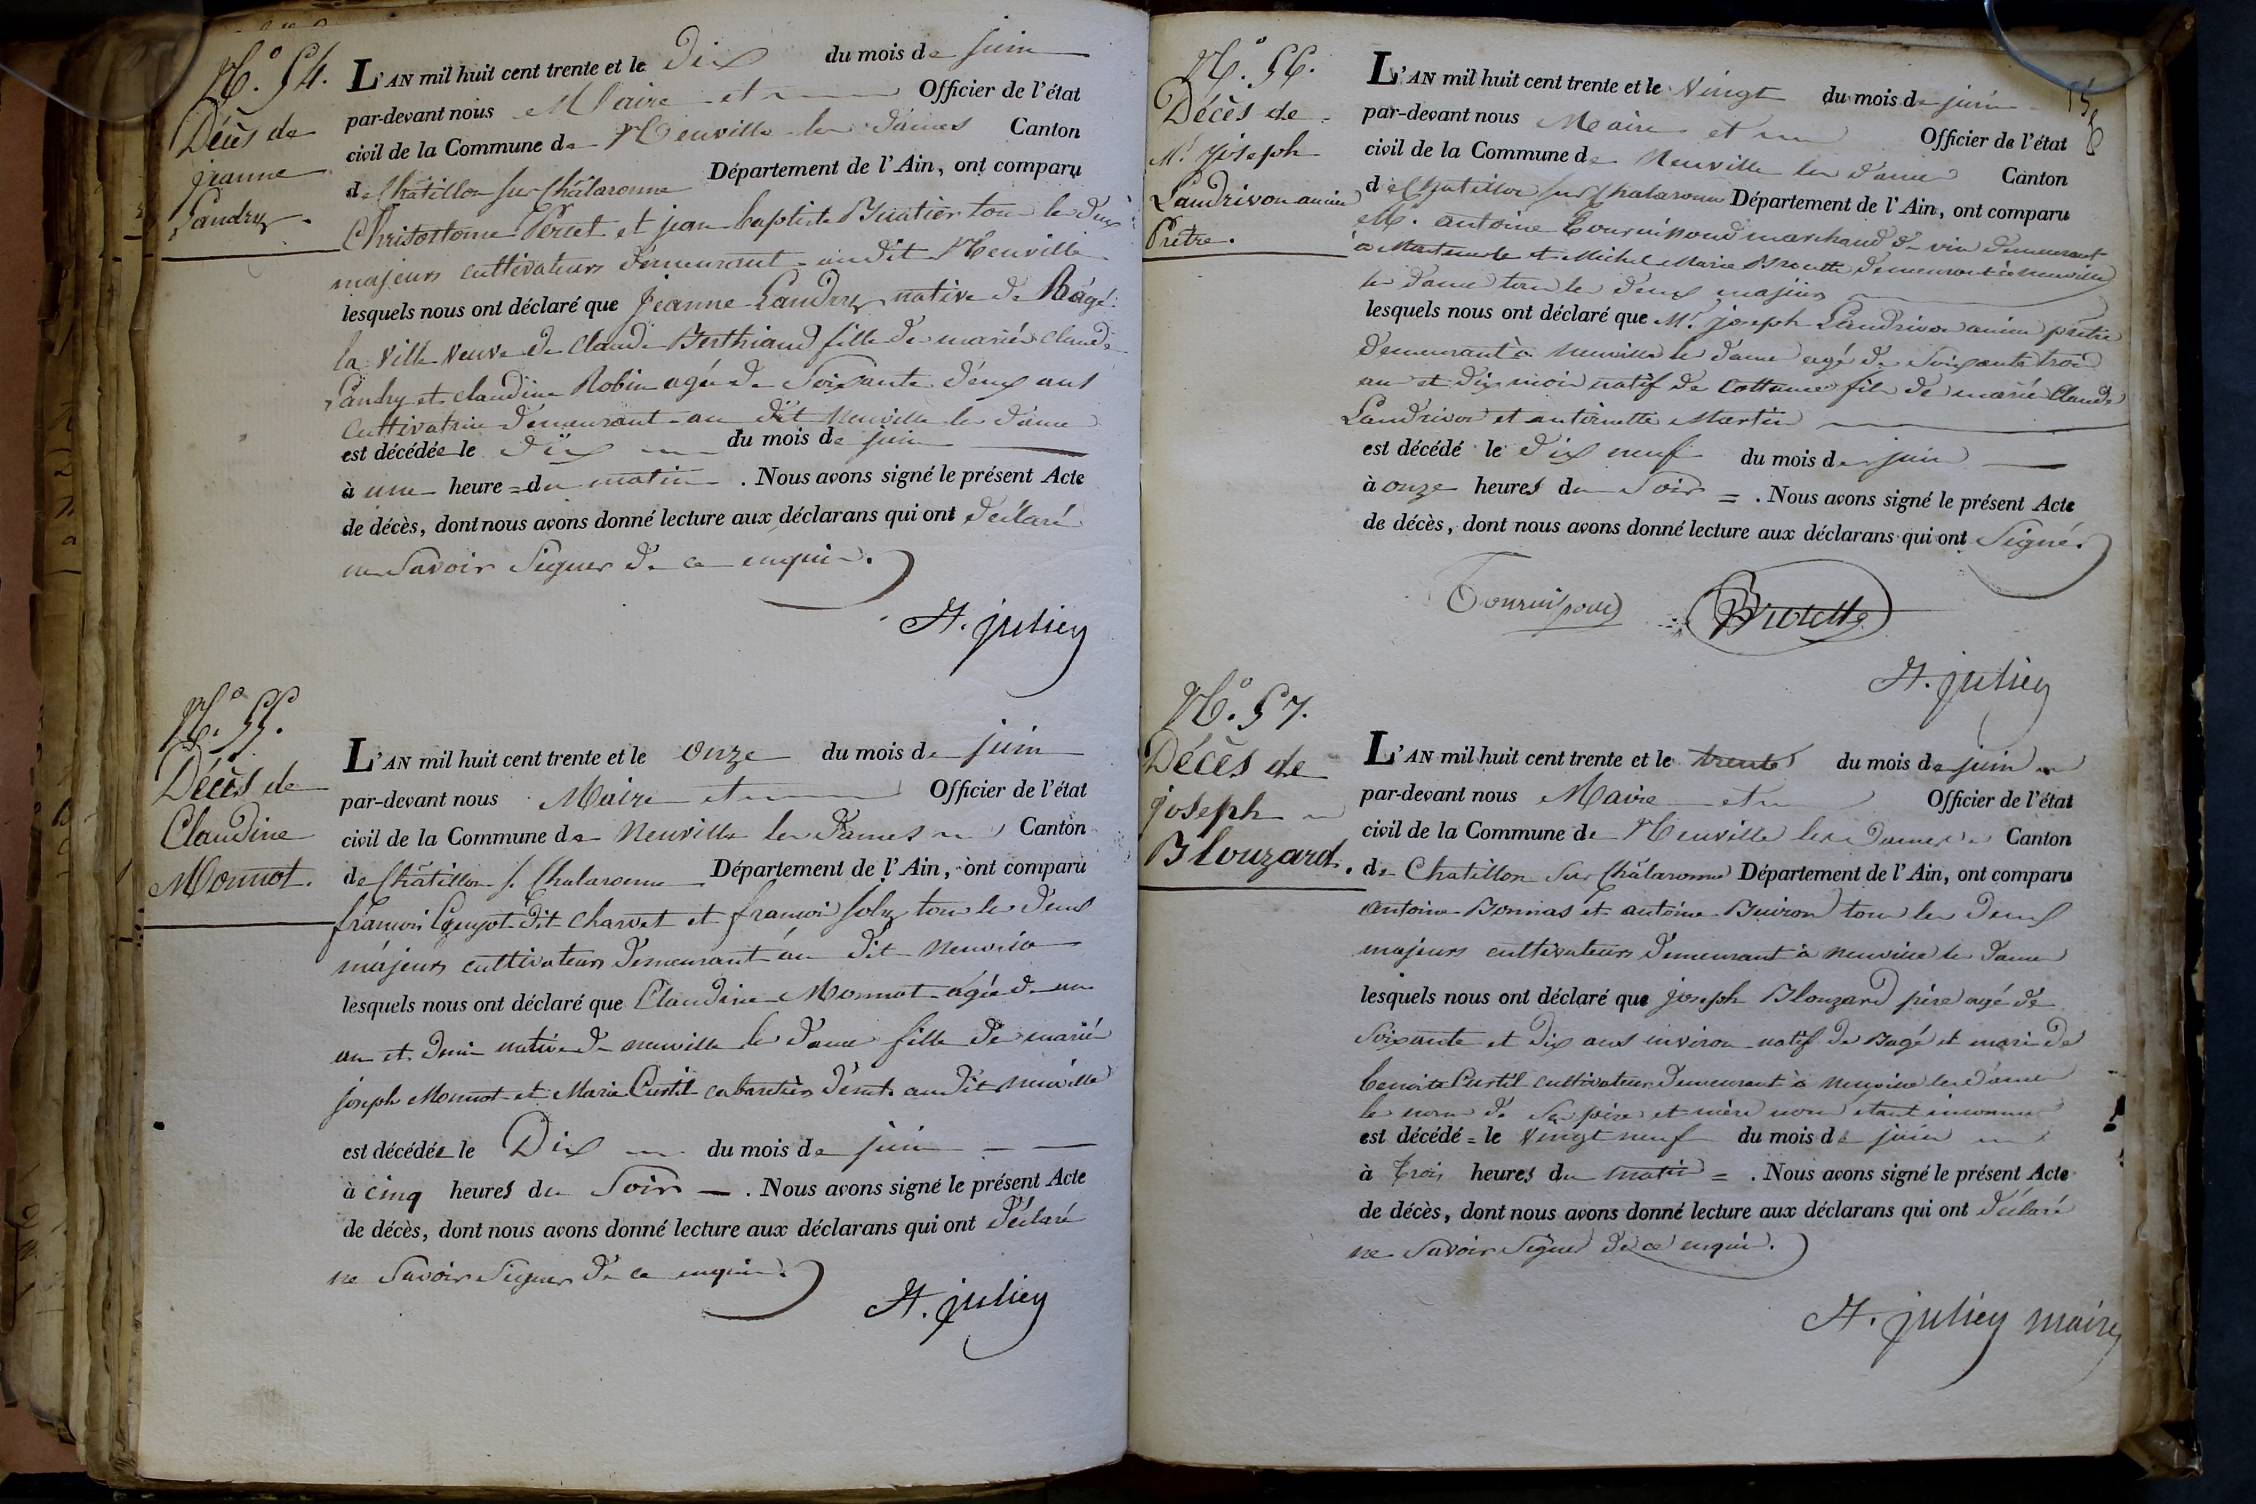 N.° 54.
Décès de
jeanne
Landry.
L'AN mil huit cent trente et le Dix du mois de juin
par-devant nous Maire et Officier de l'état
civil de la Commune de Neuville les dames Canton
de Châtillon sur Châlaronne Département de l'Ain, ont comparu
Christostome Perret et jean baptiste Buatier tous les deux
majeurs cultivateurs demeurant audit Neuville
lesquels nous ont déclaré que jeanne Landry native de Bâgé
la ville veuve de claude Berthiaud fille de mariés claude
Landry et claudine Robin agée de Soixante deux ans
cultivatrice demeurant au dit Neuville les dames
est décédée le dix du mois de juin
à une heure du matin . Nous avons signé le présent Acte
de décès, dont nous avons donné lecture aux déclarans qui ont déclaré
ne Savoir Signer de ce enquis.
A. juliey
N.° 55.
Décès de
Claudine
Monnot.
L'AN mil huit cent trente et le onze du mois de juin
par-devant nous Maire et Officier de l'état
civil de la Commune de Neuville les Dames Canton
de Châtillon s. Chalaronne Département de l'Ain, ont comparu
françois Guyot dit Charvet et françois joly tous les deux
majeurs cultivateurs demeurant au dit neuville
lesquels nous ont déclaré que Claudine Monnot agée de un
an et demi native de neuville les dames fille de mariés
joseph Monnot et Marie Curtil cabaretiers demt. audit neuville
est décédée le Dix du mois de juin
à cinq heures du Soir . Nous avons signé le présent Acte
de décès, dont nous avons donné lecture aux déclarans qui ont déclaré
ne Savoir Signer de ce enquis.
A. juliey
N.° 56.
Décès de
Mr. joseph
Landrivon ancien
Prêtre.
L'AN mil huit cent trente et le Vingt du mois de juin
par-devant nous Maire et Officier de l'état
civil de la Commune de Neuville les dames Canton
de Chatillon sur Chalaronne Département de l'Ain, ont comparu
Mr. antoine Tournissoud marchand de vin demeurant
à et Michel Marie Brotette demeurant à neuville
les dames tous les deux majeurs
lesquels nous ont déclaré que Mr. joseph Landrivon ancien prêtre
demeurant à Neuville les dames agé de Soixante trois
ans et dix mois natif de fils de mariés Claude
Landrivon et antoinette Martin
est décédé le dix neuf du mois de juin
à onze heures du Soir = . Nous avons signé le présent Acte
de décès, dont nous avons donné lecture aux déclarans qui ont Signé.
Brotette
A. juliey
N.° 57.
Décès de
joseph
Blouzard.
L'AN mil huit cent trente et le trente du mois de juin
par-devant nous Maire et Officier de l'état
civil de la Commune de Neuville les Dames Canton
de Chatillon sur Châlaronne Département de l'Ain, ont comparu
antoine Bonnas et antoine Buiron tous les deux
majeurs cultivateurs demeurant à neuville les dames
lesquels nous ont déclaré que joseph Blouzard père agé de
Soixante et dix ans environ natif de Bagé et mari de
benoite Curtil cultivateur demeurant à neuville les dames
le nom de Ses père et mère nous étant inconnus
est décédé = le vingt neuf du mois de juin
à trois heures du matin = . Nous avons signé le présent Acte
de décès, dont nous avons donné lecture aux déclarans qui ont déclaré
ne Savoir Signer de ce enquis.
A. juliey maire